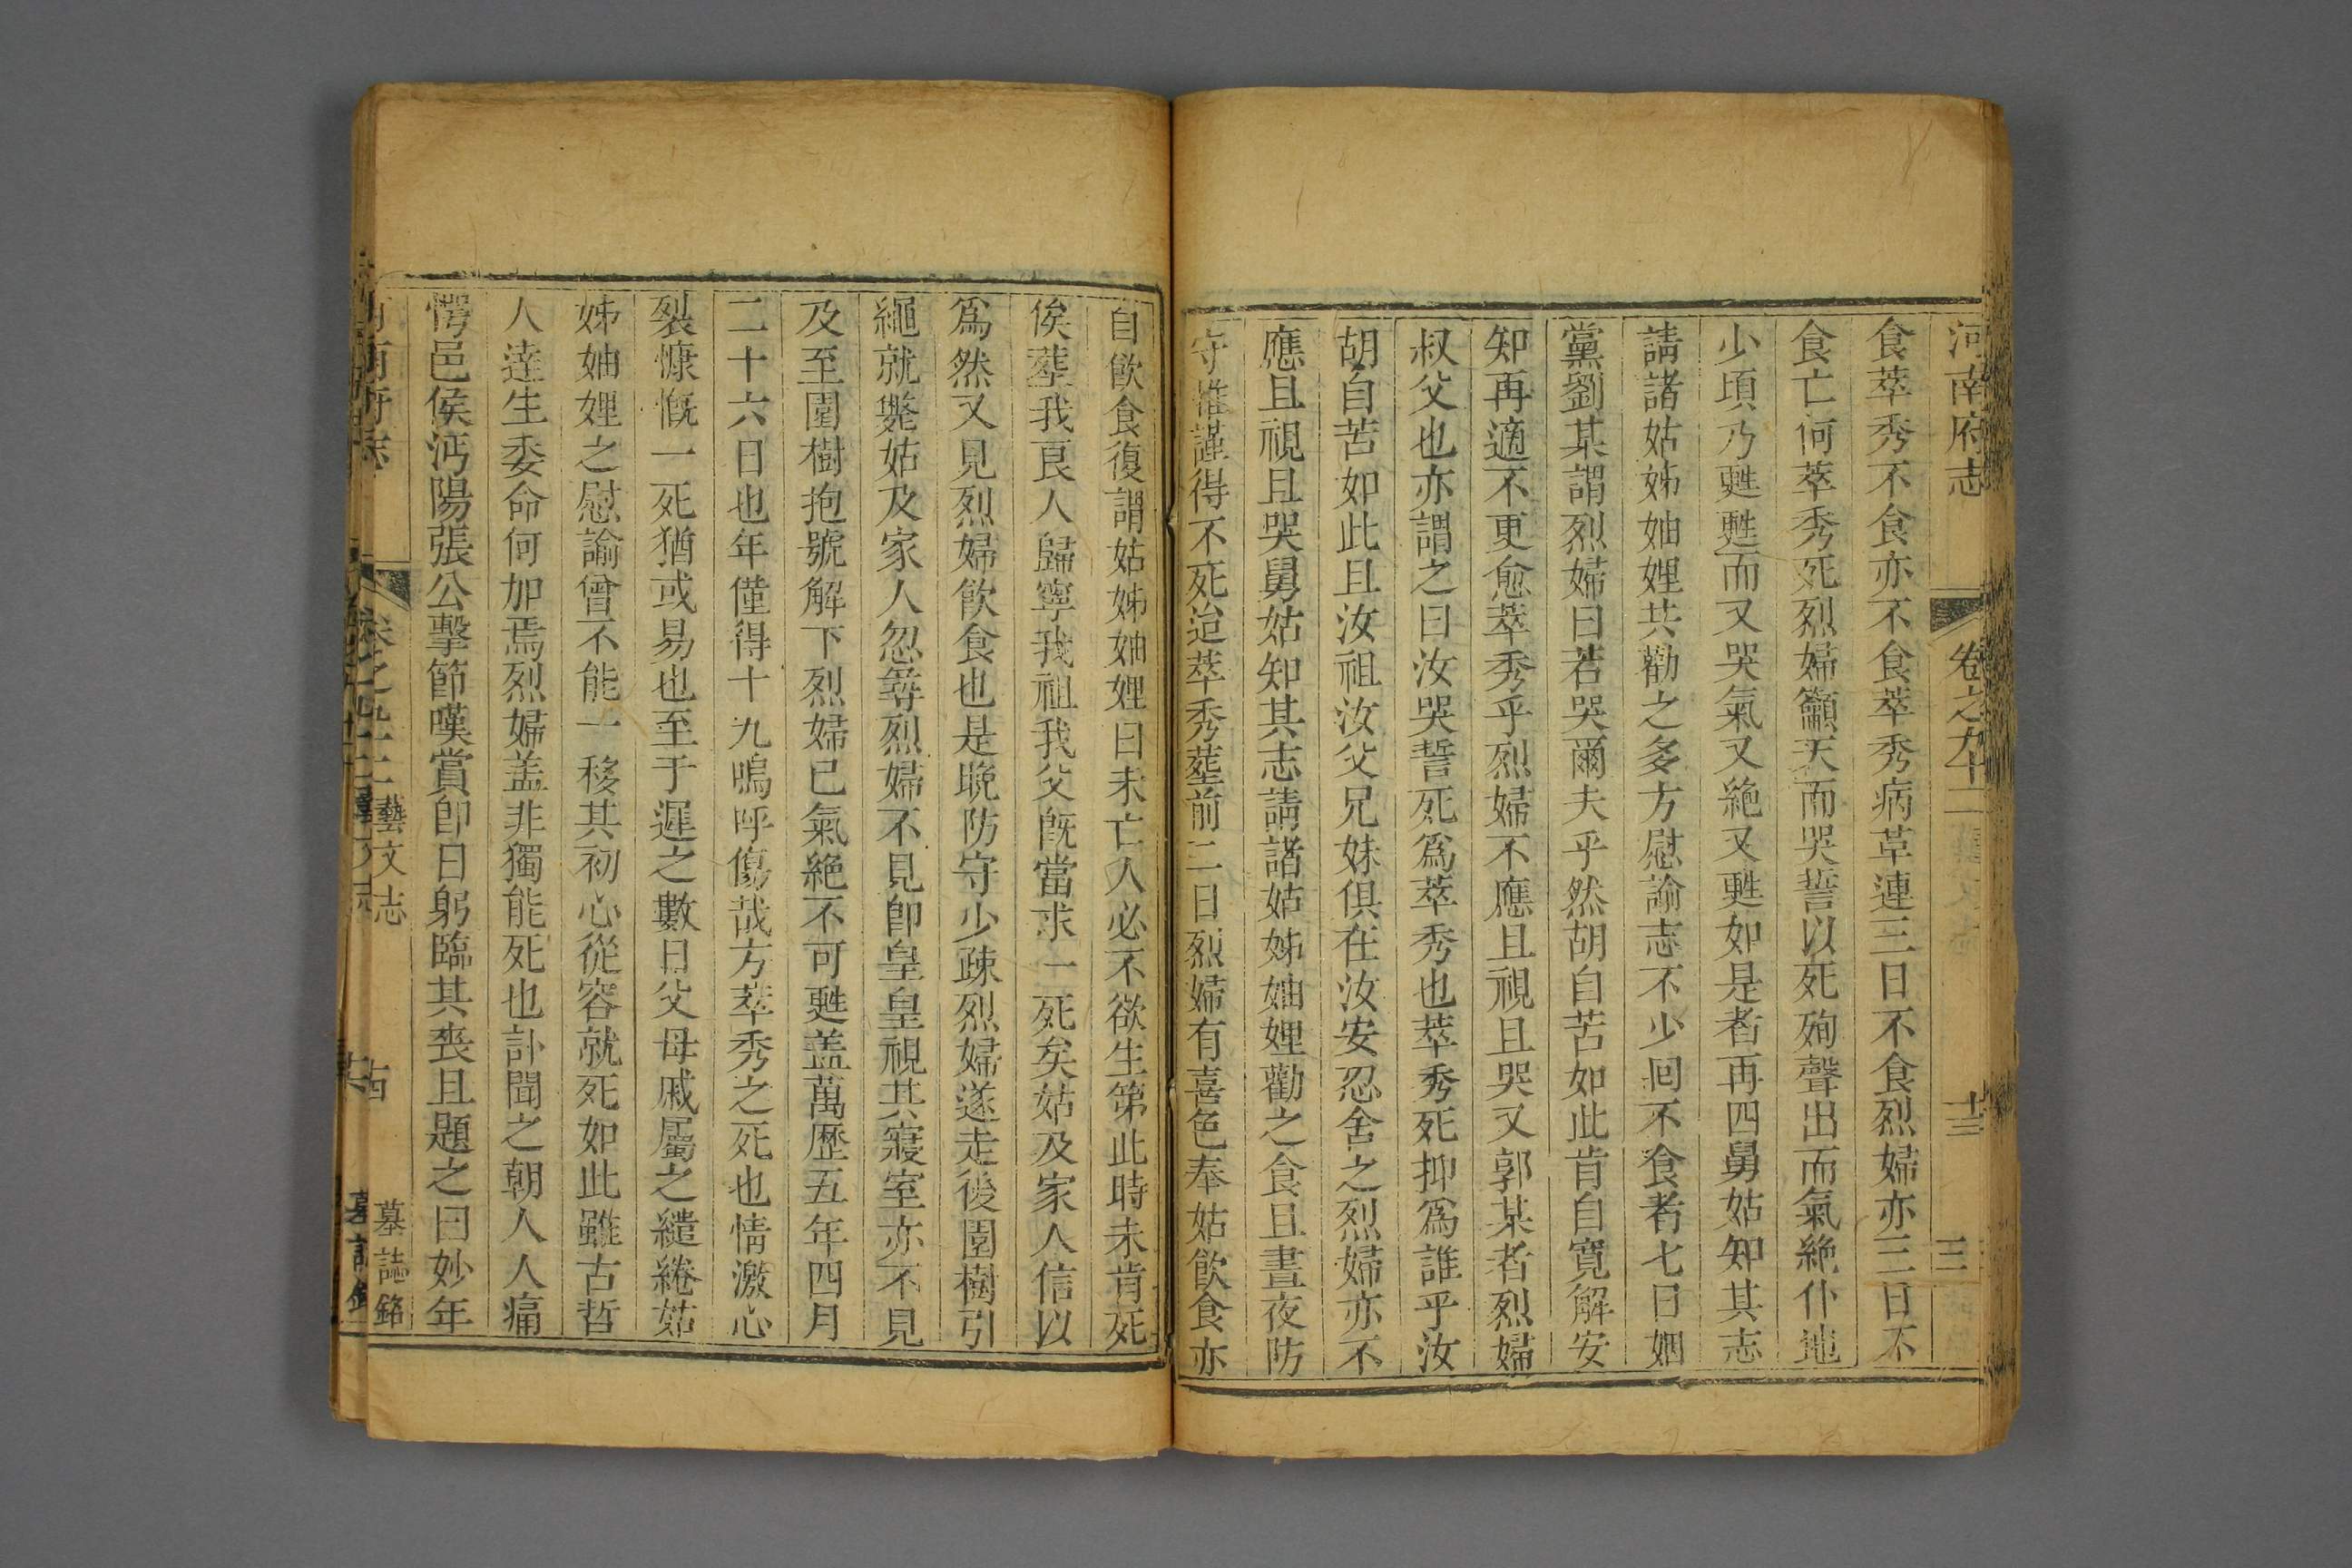 河南府志 卷之九十二 十三 三
食萃秀不食亦不食萃秀病革連三日不食烈婦亦三日不
食亡何萃秀死烈婦籲天而哭誓以死殉聲出而氣絶仆地
少頃乃甦甦而又哭氣又絶又甦如是者再四舅姑知其志
請諸姑姊妯娌共勸之多方慰諭志不少囘不食者七日姻
黨劉某謂烈婦曰若哭爾夫乎然胡自苦如此肯自寛解安
知再適不更愈萃秀乎烈婦不應且視且哭又郭某者烈婦
叔父也亦謂之曰汝哭誓死爲萃秀也萃秀死抑爲誰乎汝
胡自苦如此且汝祖汝父兄妹俱在汝安忍舍之烈婦亦不
應且視且哭舅姑知其志請諸姑姊妯娌勸之食且晝夜防
守惟謹得不死迨萃秀塟前二日烈婦有喜色奉姑飲食亦
自飲食復謂姑姊妯娌曰未亡人必不欲生第此時未肯死
俟塟我良人歸寧我祖我父旣當求一死矣姑及家人信以
爲然又見烈婦飲食也是晩防守少疎烈婦遂走後園樹引
繩就斃姑及家人忽尋烈婦不見卽皇皇視其寢室亦不見
及至園樹抱號解下烈婦已氣絶不可甦盖萬歷五年四月
二十六日也年僅得十九嗚呼傷哉方萃秀之死也情激心
裂慷慨一死猶或易也至于遲之數日父母戚屬之繾綣姑
姊妯娌之慰諭曾不能一移其初心從容就死如此雖古哲
人達生委命何加焉烈婦盖非獨能死也訃聞之朝人人痛
愕邑侯沔陽張公擊節嘆賞卽日躬臨其喪且題之曰妙年
河南府志 卷之九十二 藝文志 古 墓誌銘